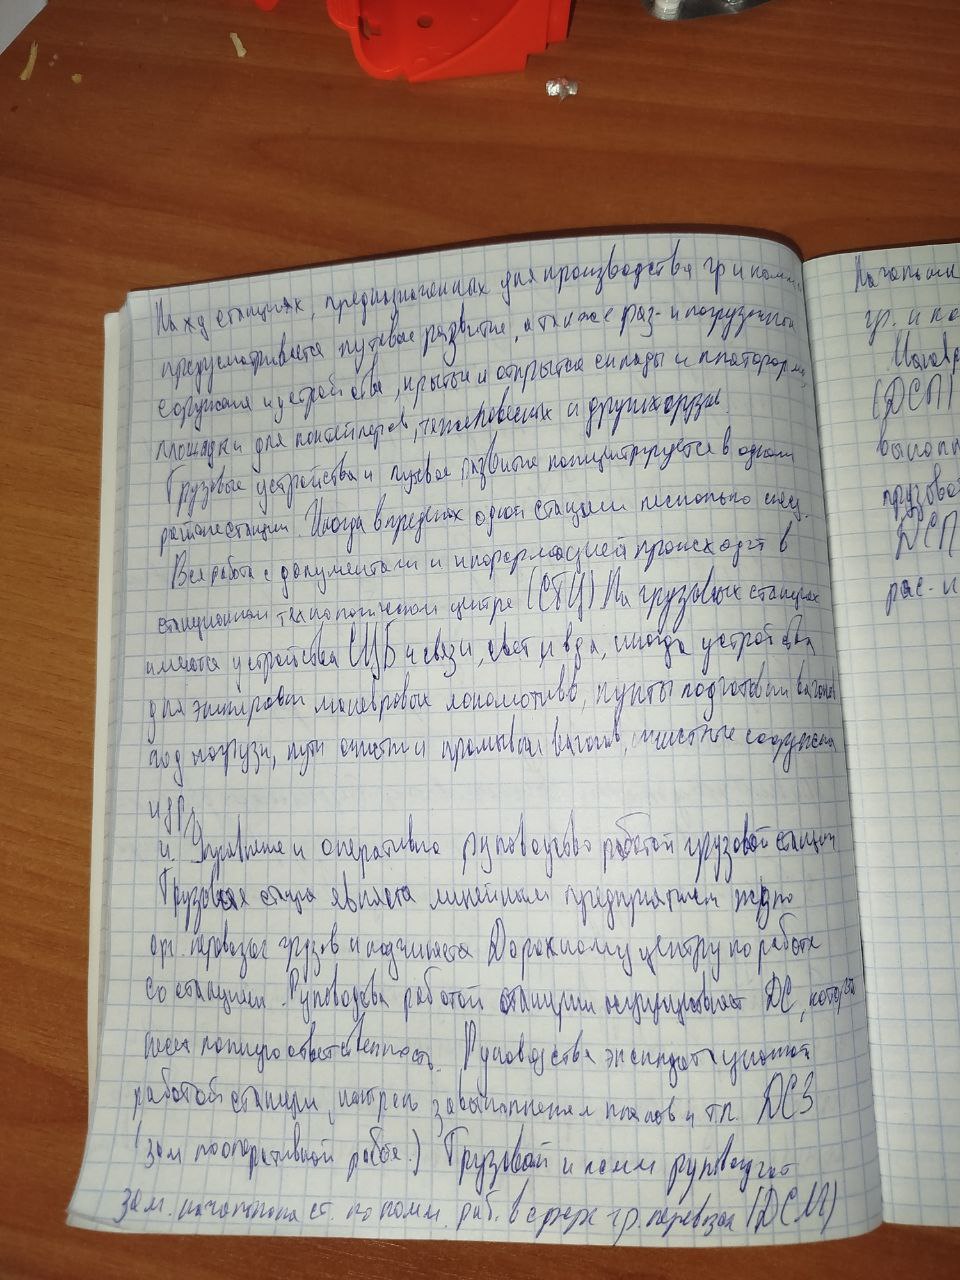 На жд станциях, предназначенных для производства гр и комм.
предусматривается путевое развитие, а также раз- и погрузочной
соружения и устройства, крытые и открытые склады и платформы,
площадки для контейнеров, тяжеловесных и других грузов.
Грузовые устройства и путевое развитие концентрируется в одном
районе станции. Иногда в пределах одной станции несколько спец.
Вся работа с документами и информацией происходит в
станционном технологическом центре (СТЦ) На грузовых станциях
имеются устройства СЦБ и связи, свет и вода, иногда устройства
для экипировки маневровых локомотивов, пункты подготовки вагонов
под погрузки, пути очистки и промывки вагонов, очистные сооружения
и др.
4. Управление и оперативно руководство работой грузовой станции
Грузовая станция является линейным предприятием жд по
ор. перевозок грузов и подчиняется Дорожному центру по работе
со станциями. Руководство работой станции осуществляет ДС, который
несет полную ответственность. Руководство эксплуатационной
работой станции, контроль за выполнением планов и т.п. ДСЗ
(зам по оперативной работе.) Грузовой и комм руководит
зам. начальника ст. по комм. раб. в сфере гр. перевозок (ДСМ)
Начальни
гр. и ко
Манев
(ДСП)
выполн
грузовой
ДСП
рас. и